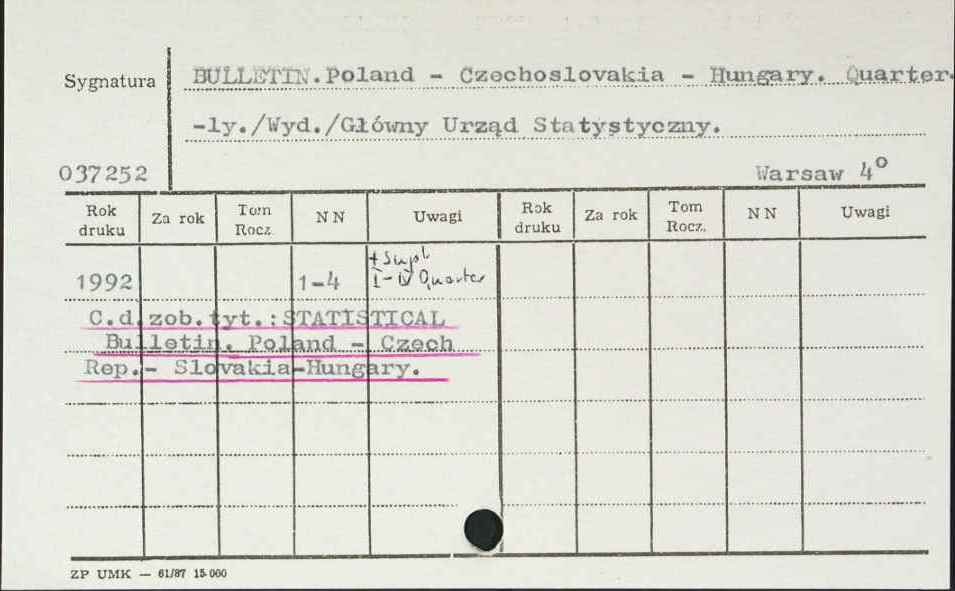 Sygnatura
BULLETIN.Poland - Czechoslovakia - Hungary. Quarter-
-ly./Wyd./Główny Urząd Statystyczny.
037252
Warsaw 4º
Rok druku Za rok Tom Rocz. N N Uwagi Rok druku Za rok Tom Rocz. N N Uwagi
1992 1-4 + Supl
I-IV Quarter
C.d.zob.tyt.:STATISTICAL
Bulletin. Poland - Czech
Rep.- Slovakia-Hungary.
ZP UMK — 61/87 15 000